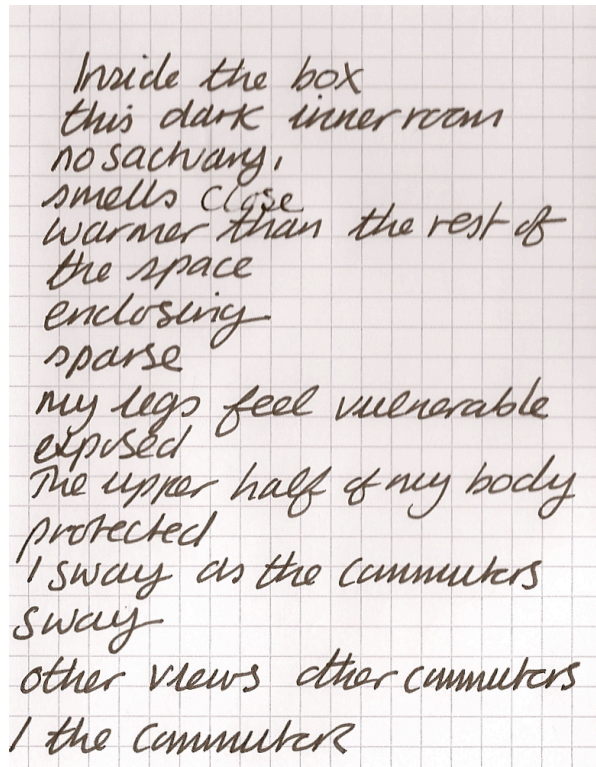 Inside the box
this dark inner room
no sactuary,
smells close
warmer than the rest of
the space
enclosing
sparse
my legs feel vulnerable
exposed
The upper half of my body
protected
I sway as the commuters
sway
other views other commuters
I the commuter